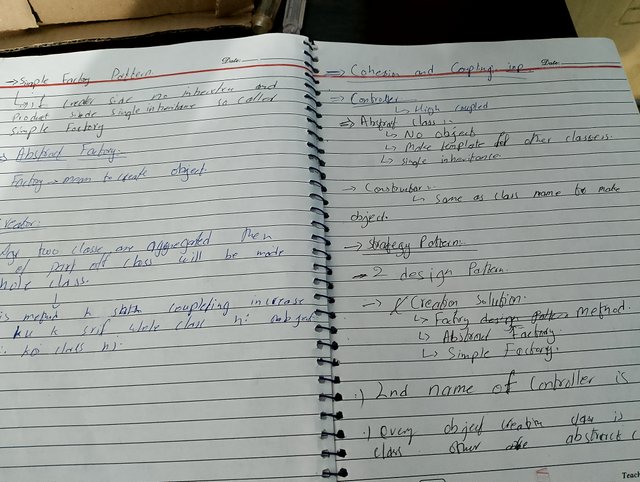 Date:
→ Simple Factory Pattern
creater side no inheriten and
Product side single inheritance so called
Simple Factory
→ Abstract Factory:-
Factory → mean to create object.
two classe are aggregated then
of part off class will be made
class.
↓
k sath coupleing increase
k sirf whole class hi
class hi
Date:
⇒ Cohesion and Coupling imp
⇒ Controller
↳ High coupled
⇒ Abstract class:-
↳ No object
↳ Make template for other classes.
↳ single inheritance.
→ Constructor:-
↳ Same as class name to make
object.
→ Strategy Pattern.
→ 2 design Pattern.
→ Creation Solution:
↳ Fatry method.
↳ Abstract Factory.
↳ Simple Factory.
:) 2nd name of Controller is
:) Every object creation class is
class other are abstract
Teach